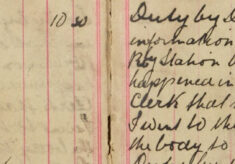 10 30
Duty by D
information
Ry Station
happened in
Clerk that
I went to the
the body to